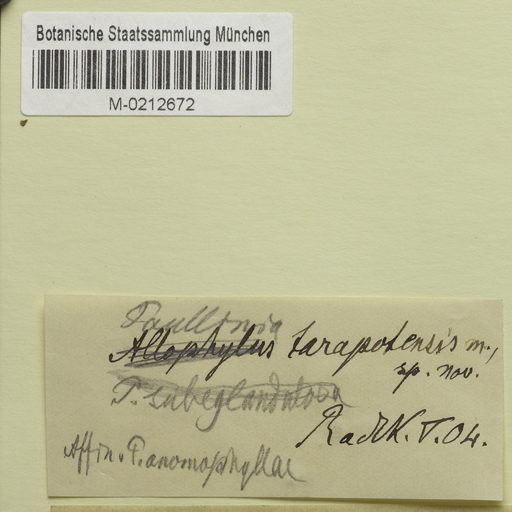 Botanische Staatssammlung München
M-0212672
Paullinia
Allophylus tarapotensis m.,
sp. nov.
P. subeglandulosa
Radlk. T. 04.
Affin. P. anomophyllae